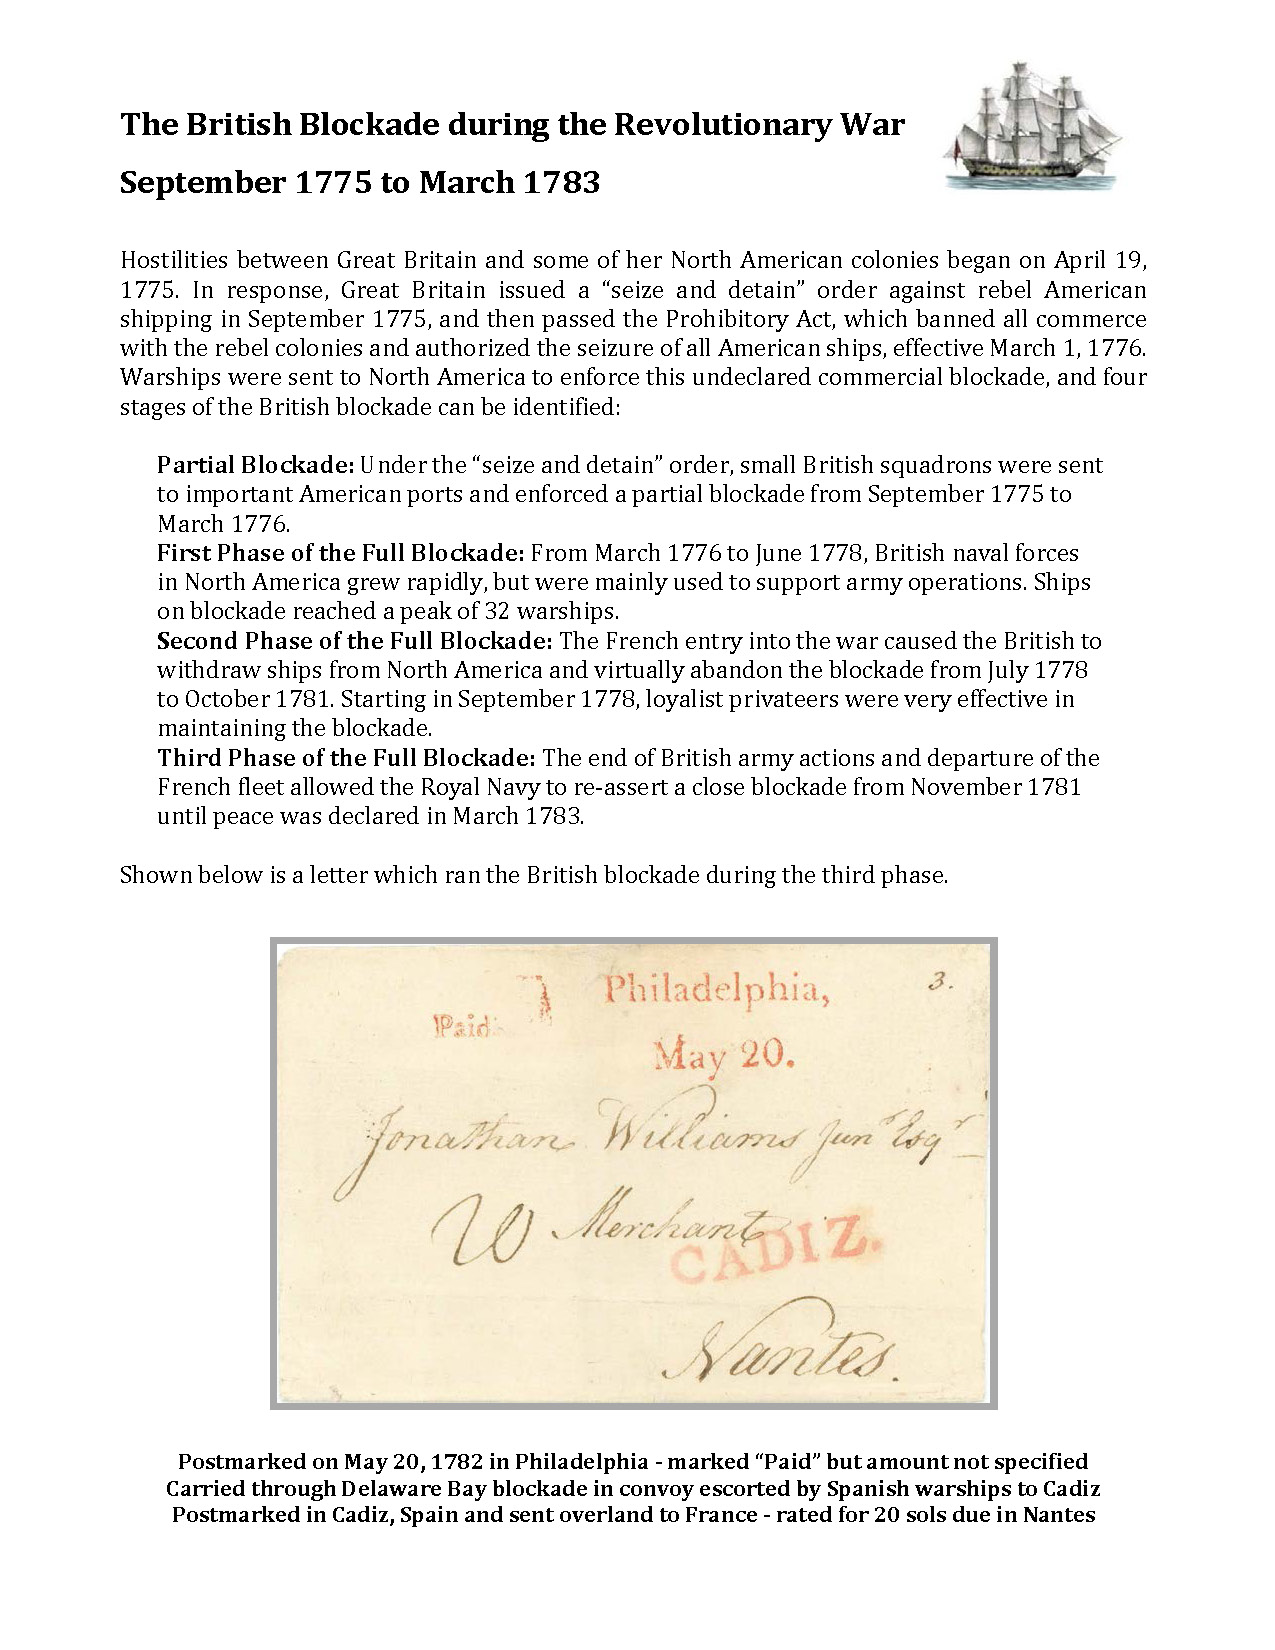 The British Blockade during the Revolutionary War
September 1775 to March 1783
Hostilities between Great Britain and some of her North American colonies began on April 19,
1775. In response, Great Britain issued a “seize and detain” order against rebel American
shipping in September 1775, and then passed the Prohibitory Act, which banned all commerce
with the rebel colonies and authorized the seizure of all American ships, effective March 1, 1776.
Warships were sent to North America to enforce this undeclared commercial blockade, and four
stages of the British blockade can be identified:
Partial Blockade: Under the “seize and detain” order, small British squadrons were sent
to important American ports and enforced a partial blockade from September 1775 to
March 1776.
First Phase of the Full Blockade: From March 1776 to June 1778, British naval forces
in North America grew rapidly, but were mainly used to support army operations. Ships
on blockade reached a peak of 32 warships.
Second Phase of the Full Blockade: The French entry into the war caused the British to
withdraw ships from North America and virtually abandon the blockade from July 1778
to October 1781. Starting in September 1778, loyalist privateers were very effective in
maintaining the blockade.
Third Phase of the Full Blockade: The end of British army actions and departure of the
French fleet allowed the Royal Navy to re-assert a close blockade from November 1781
until peace was declared in March 1783.
Shown below is a letter which ran the British blockade during the third phase.
Philadelphia, 3.
Paid
May 20.
Jonathan Williams Junr Esqr
Merchant
CADIZ.
Nantes.
Postmarked on May 20, 1782 in Philadelphia - marked “Paid” but amount not specified
Carried through Delaware Bay blockade in convoy escorted by Spanish warships to Cadiz
Postmarked in Cadiz, Spain and sent overland to France - rated for 20 sols due in Nantes